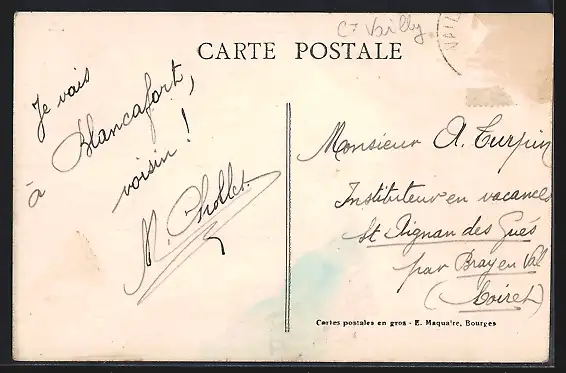 Cⁿ Vailly
CARTE POSTALE
Je vais
à Blancafort,
voisin !
M. Chollet
Monsieur A. Turpin
Instituteur en vacances
St Aignan des Gués
par Bray en Val
(Loiret)
Cartes postales en gros - E. Maquaire, Bourges